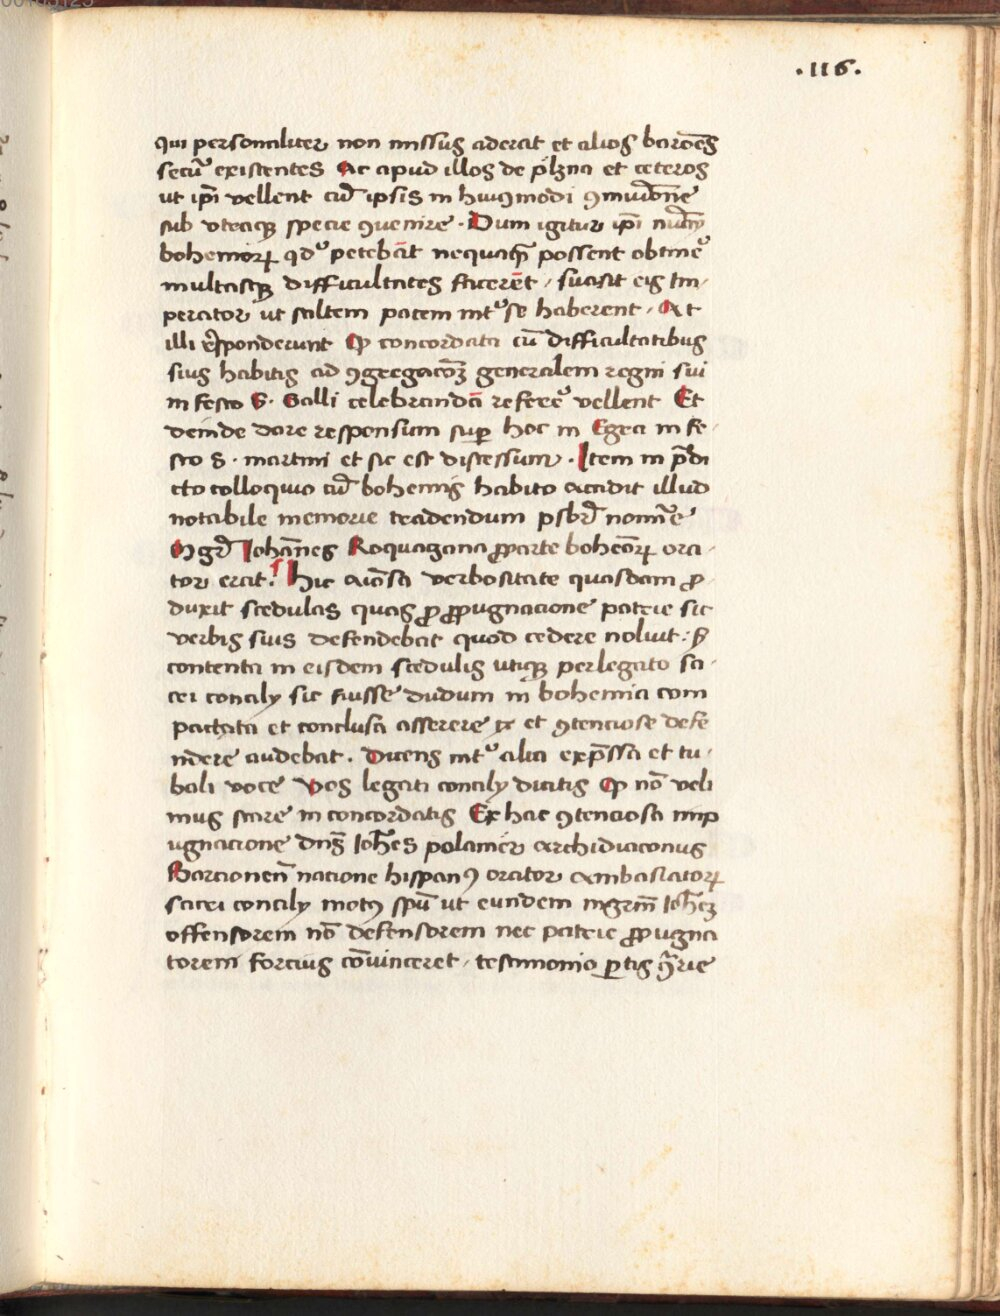 .116.
qui personaliter non missus aderat et alios baroēs
secū existentes Ac apud illos de plzna et ceteros
ut ip̄i vellent cū ipsis in huiꝯmodi ꝯmuniōne
sub utraqꝫ specie ꝯuenire · Dum igitur ip̄i nūcij
bohemoꝝ qd' petebāt nequaꝗ̄ possent obtine'
multasqꝫ difficultates facerēt / suasit eis Im-
perator ut saltem pacem int' se haberent · At
illi respōnderunt Ꝙ concordata cū difficultatibus
suis habitis ad ꝯgregacōꝫ generalem regni sui
in festo S. Galli celebrandā refere' vellent Et
deinde dare responsum super hoc in Egra in fe-
sto S. martini et sic est discessum · Item in p̄di
cto colloquio cū bohemis habito accidit illud
notabile memorie tradendum psbr̄ nomīe
Mgr̄ Johānnes Roquazana ꝓparte boheōꝝ ora-
tor erat. Hic aiōsa verbositate quasdam ꝓ-
duxit scedulas quas ꝓ ꝓpugnacione patrie sic
verbis suis defendebat quod cedere noluit :
contenta in eisdem scedulis utiqꝫ per legato sa-
cri concily sic fuisse dudum in bohemia com
pactata et conclusa asserere et ꝯtenciose defe
ndere audebat . Dicens int' alia exp̄ssa et tu-
bali voce Vos legati concily dicitis Ꝙ nō veli
mus stare in concordatis Ex hac ꝯtenciosa imp
ugnacione dn̄s Ioh̄es polamer archidiaconus
Barcionen̄ nacione hispanꝯ orator ambasiatoꝝ
sacri concily motꝯ spū ut eundem mgrm̄ Ioh̄eꝫ
offensorem nō defensorem nec patrie ꝓpugna
torem forcius cōuinceret / testimonio ꝑtis ꝯ̄rie